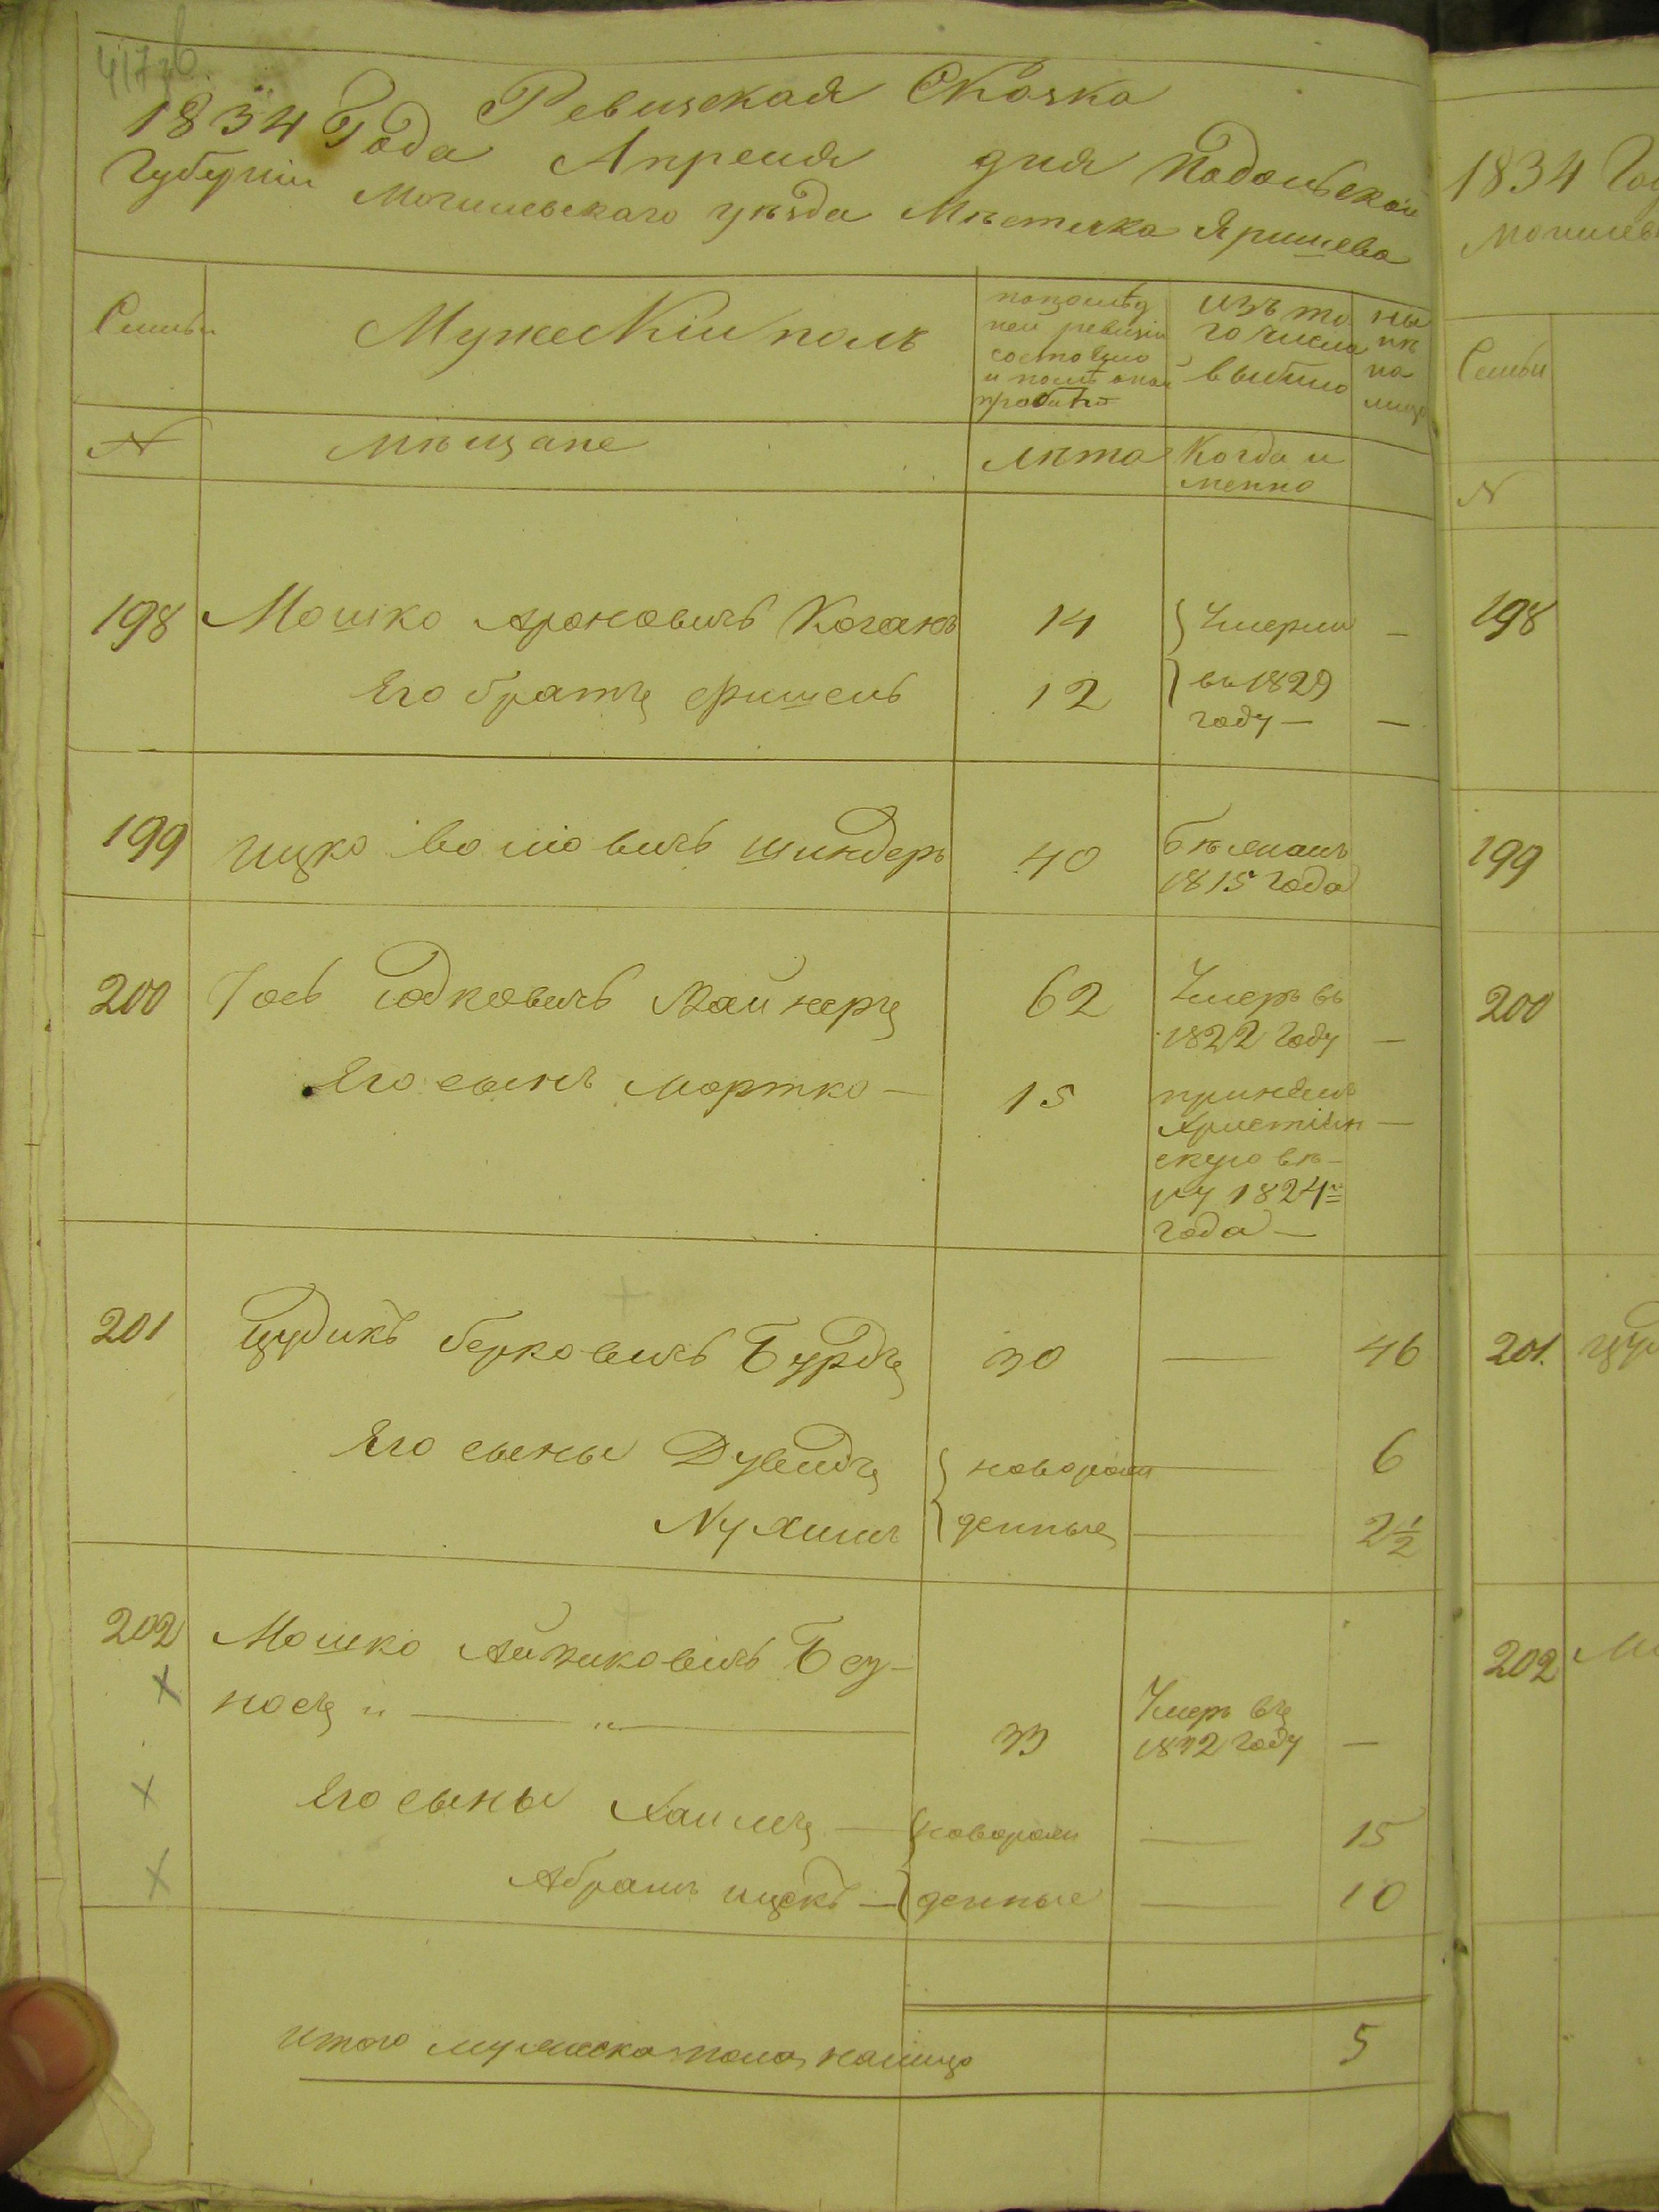 417об
Ревизская Сказка
1834 Года Апреля дня Подольской
Губерніи Могилевскаго уѣзда Мѣстечка Яришева
Семьи
Мужескій полъ
по послѣд
ней ревизіи
состояло
и послѣ оной
прибыло
изъ то
го числа
выбыло
ны
нѣ
на
лицо
N
мѣщане
лѣта
Когда и
менно
198 Мошко Ароновичь Коганъ 14 Умерли —
Его братъ Фишель 12 въ 1829
году — —
199 Ицко Волiовичь Шиндеръ 40 бѣжалъ
1815 года
200 Іось Юдковичь Вайнеръ 62 Умеръ въ
1822 году —
Его сынъ Мортко — 15 принялъ
Христіян —
скую вѣ-
ру 1824го
года —
201 Цудикъ Берковичь Бурдъ 30 — 46
Его сыны Дувидъ новорож — 6
Нухимъ денные — 2½
202 Мошко Айзиковичь Без-
носъ " — " — 33 Умеръ въ
1832 году —
Его сыны Хаимъ — новорож — 15
Абрамъ Ицекъ — денные — 10
Итого мужеска пола налицо 5
1834 Год
Могилев
Семьи
N
198
199
200
201. Цуд
202 Мо